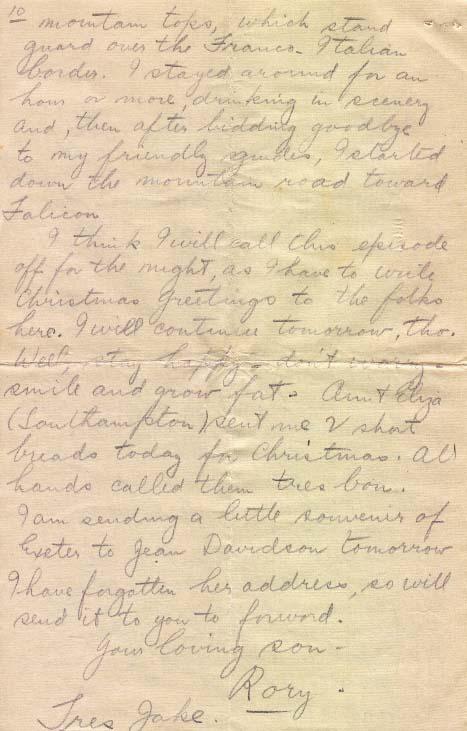 10
mountain tops, which stand
guard over the Franco-Italian
border. I stayed around for an
hour or more, drinking in scenery
and, then after bidding goodbye
to my friendly guides, I started
down the mountain road toward
Falicon
I think I will call this episode
off for the night, as I have to write
Christmas Greetings to the folks
here. I will continue tomorrow, tho.
Well, stay happy - don't worry -
smile and grow fat. Aunt Eliza
(Southampton) sent me 2 short
breads today for Christmas. All
hands called them tres bon.
I am sending a little souvenir of
Exeter to Jean Davidson tomorrow
I have forgotten her address, so will
send it to you to forword.
Your loving son -
Rory.
Tres Jake.